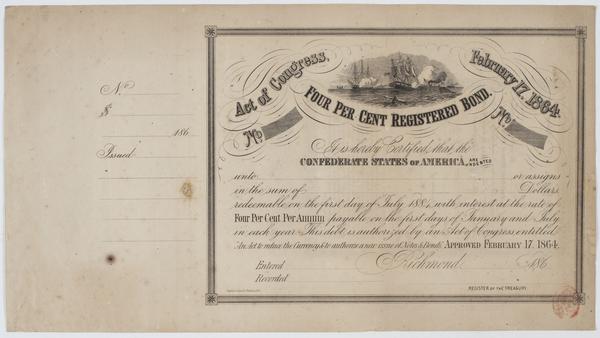 No
$
186
Issued
Act of Congress, February 17, 1864.
FOUR PER CENT REGISTERED BOND.
No No
It is hereby Certified, that the
CONFEDERATE STATES OF AMERICA, ARE INDEBTED
unto or assigns
in the sum of Dollars
redeemable on the first day of July 1884, with interest at the rate of
Four Per Cent Per Annum payable on the first days of January and July
in each year. This debt is authorized by an Act of Congress, entitled
"An Act to reduce the Currency & to authorize a new issue of Notes & Bonds" APPROVED FEBRUARY 17. 1864.
Entered Richmond 186
Recorded
REGISTER OF THE TREASURY.